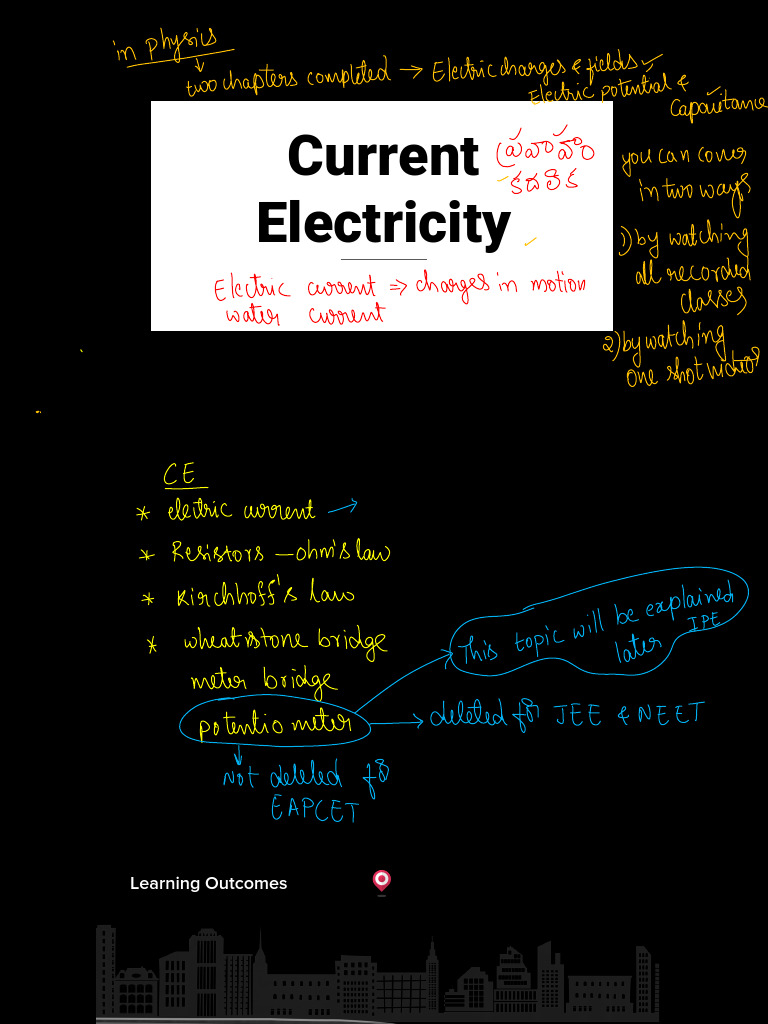 in physics
two chapters completed → Electric charges & fields ✓
Electric potential & ✓
Capacitance
Current
ప్రవాహం
కదలిక
Electricity
Electric current ⇒ charges in motion
water current
you can cover
in two ways
1) by watching
all recorded
classes
2) by watching
one shot videos
CE
* electric current →
* Resistors — ohm's law
* Kirchhoff's law
* wheatstone bridge
meter bridge
potentio meter
This topic will be explained
later IPE
deleted for JEE & NEET
Not deleted for
EAPCET
Learning Outcomes